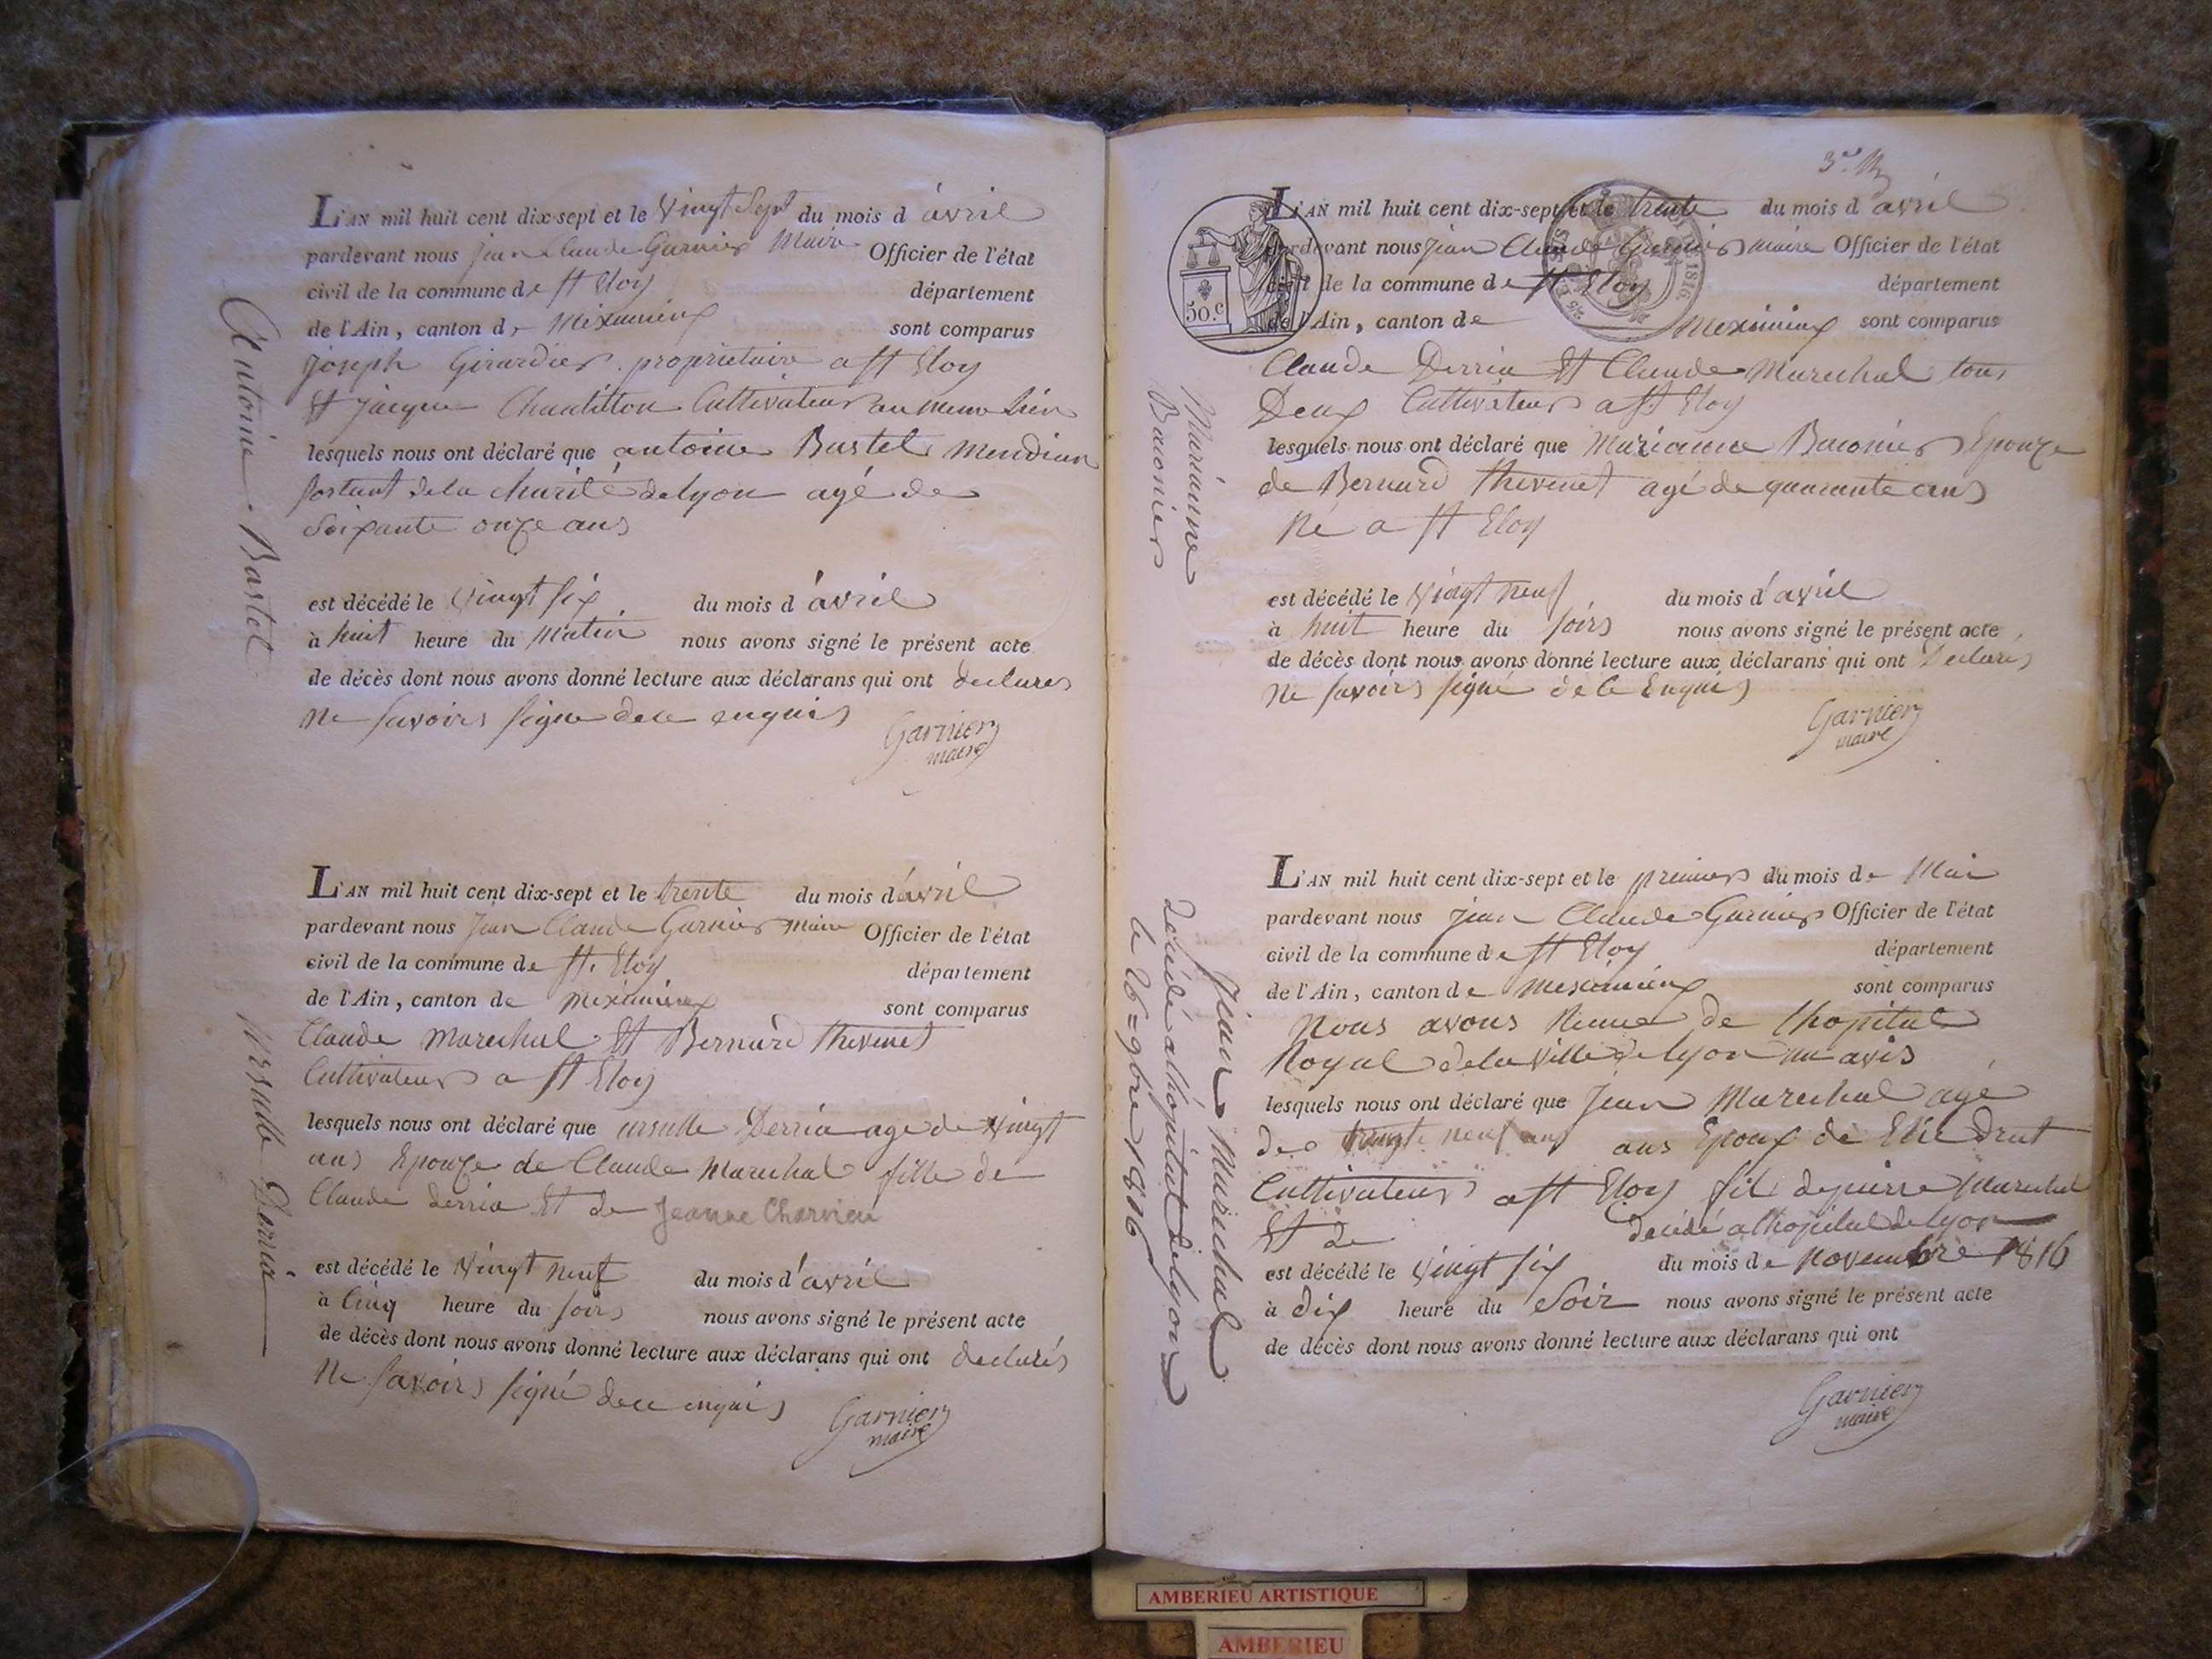 L'AN mil huit cent dix-sept et le vingt Sept du mois d'avril
pardevant nous jean Claude Garnier Maire Officier de l'état
civil de la commune de St Eloy département
de l'Ain, canton de Meximieux sont comparus
joseph Girardier proprietaire a St Eloy
Et jacque Chantillon Cultivateur au meme Lieu
lesquels nous ont déclaré que antoine Bastel Mendian
Sortant de la charité de lyon agé de
Soixante onze ans
est décédé le vingt Six du mois d'avril
à huit heure du Matin nous avons signé le présent acte
de décès dont nous avons donné lecture aux déclarans qui ont declares
ne Savoirs Signe de ce enquis
Garnier
maire
Antoine Bastel
L'AN mil huit cent dix-sept et le trente du mois d'avril
pardevant nous jean Claude Garnier Maire Officier de l'état
civil de la commune de St. Eloy département
de l'Ain, canton de Meximieux sont comparus
Claude Marechal Et Bernard thevenet
Cultivateurs a St Eloy
lesquels nous ont déclaré que ursulle Derria age de vingt
ans Epouze de Claude Marechal fille de
Claude derria Et de Jeanne Charvieu
est décédé le vingt neuf du mois d'avril
à Cinq heure du Soirs nous avons signé le présent acte
de décès dont nous avons donné lecture aux déclarans qui ont declarés
Ne Savoirs Signé de ce enquis
Garnier
maire
Ursulle Derria
50.c
1816.
L'AN mil huit cent dix-sept et le trente du mois d'avril
pardevant nous jean Claude Garnier maire Officier de l'état
civil de la commune de St Eloy département
de l'Ain, canton de Meximieux sont comparus
Claude Derria Et Claude Marechal tous
Deux Cultivateurs a St Eloy
lesquels nous ont déclaré que Marianne Baconier Epouze
de Bernard thevenet agé de quarante ans
Né a St Eloy
est décédé le vingt neuf du mois d'avril
à huit heure du Soirs nous avons signé le présent acte
de décès dont nous avons donné lecture aux déclarans qui ont Declarés
Ne Savoirs Signé de Ce Enquis
Garnier
maire
Marianne
Baconier
L'AN mil huit cent dix-sept et le premier du mois de Mai
pardevant nous jean Claude Garnier Officier de l'état
civil de la commune de St Eloy département
de l'Ain, canton de Meximieux sont comparus
Nous avons Reçue de lhopital
Royal de la ville de lyon un avis
lesquels nous ont déclaré que Jean Marechal agé
de vingt neuf ans ans Epoux de Drut
Cultivateur a St Eloy fils de pierre Marechal
Et de decédé a lhopital de lyon
est décédé le vingt Six du mois de Novembre 1816
à dix heure du Soir nous avons signé le présent acte
de décès dont nous avons donné lecture aux déclarans qui ont
Garnier
maire
Jean Marechal
décédé a lhopital de lyon
le 26 = 9bre 1816
AMBERIEU ARTISTIQUE
AMBERIEU